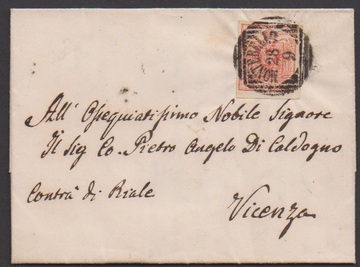 28
9
All' Ossequiatissimo Nobile Signore
Il Sig Co. Pietro Angelo Di Caldogno
Contrà di Riale
Vicenza